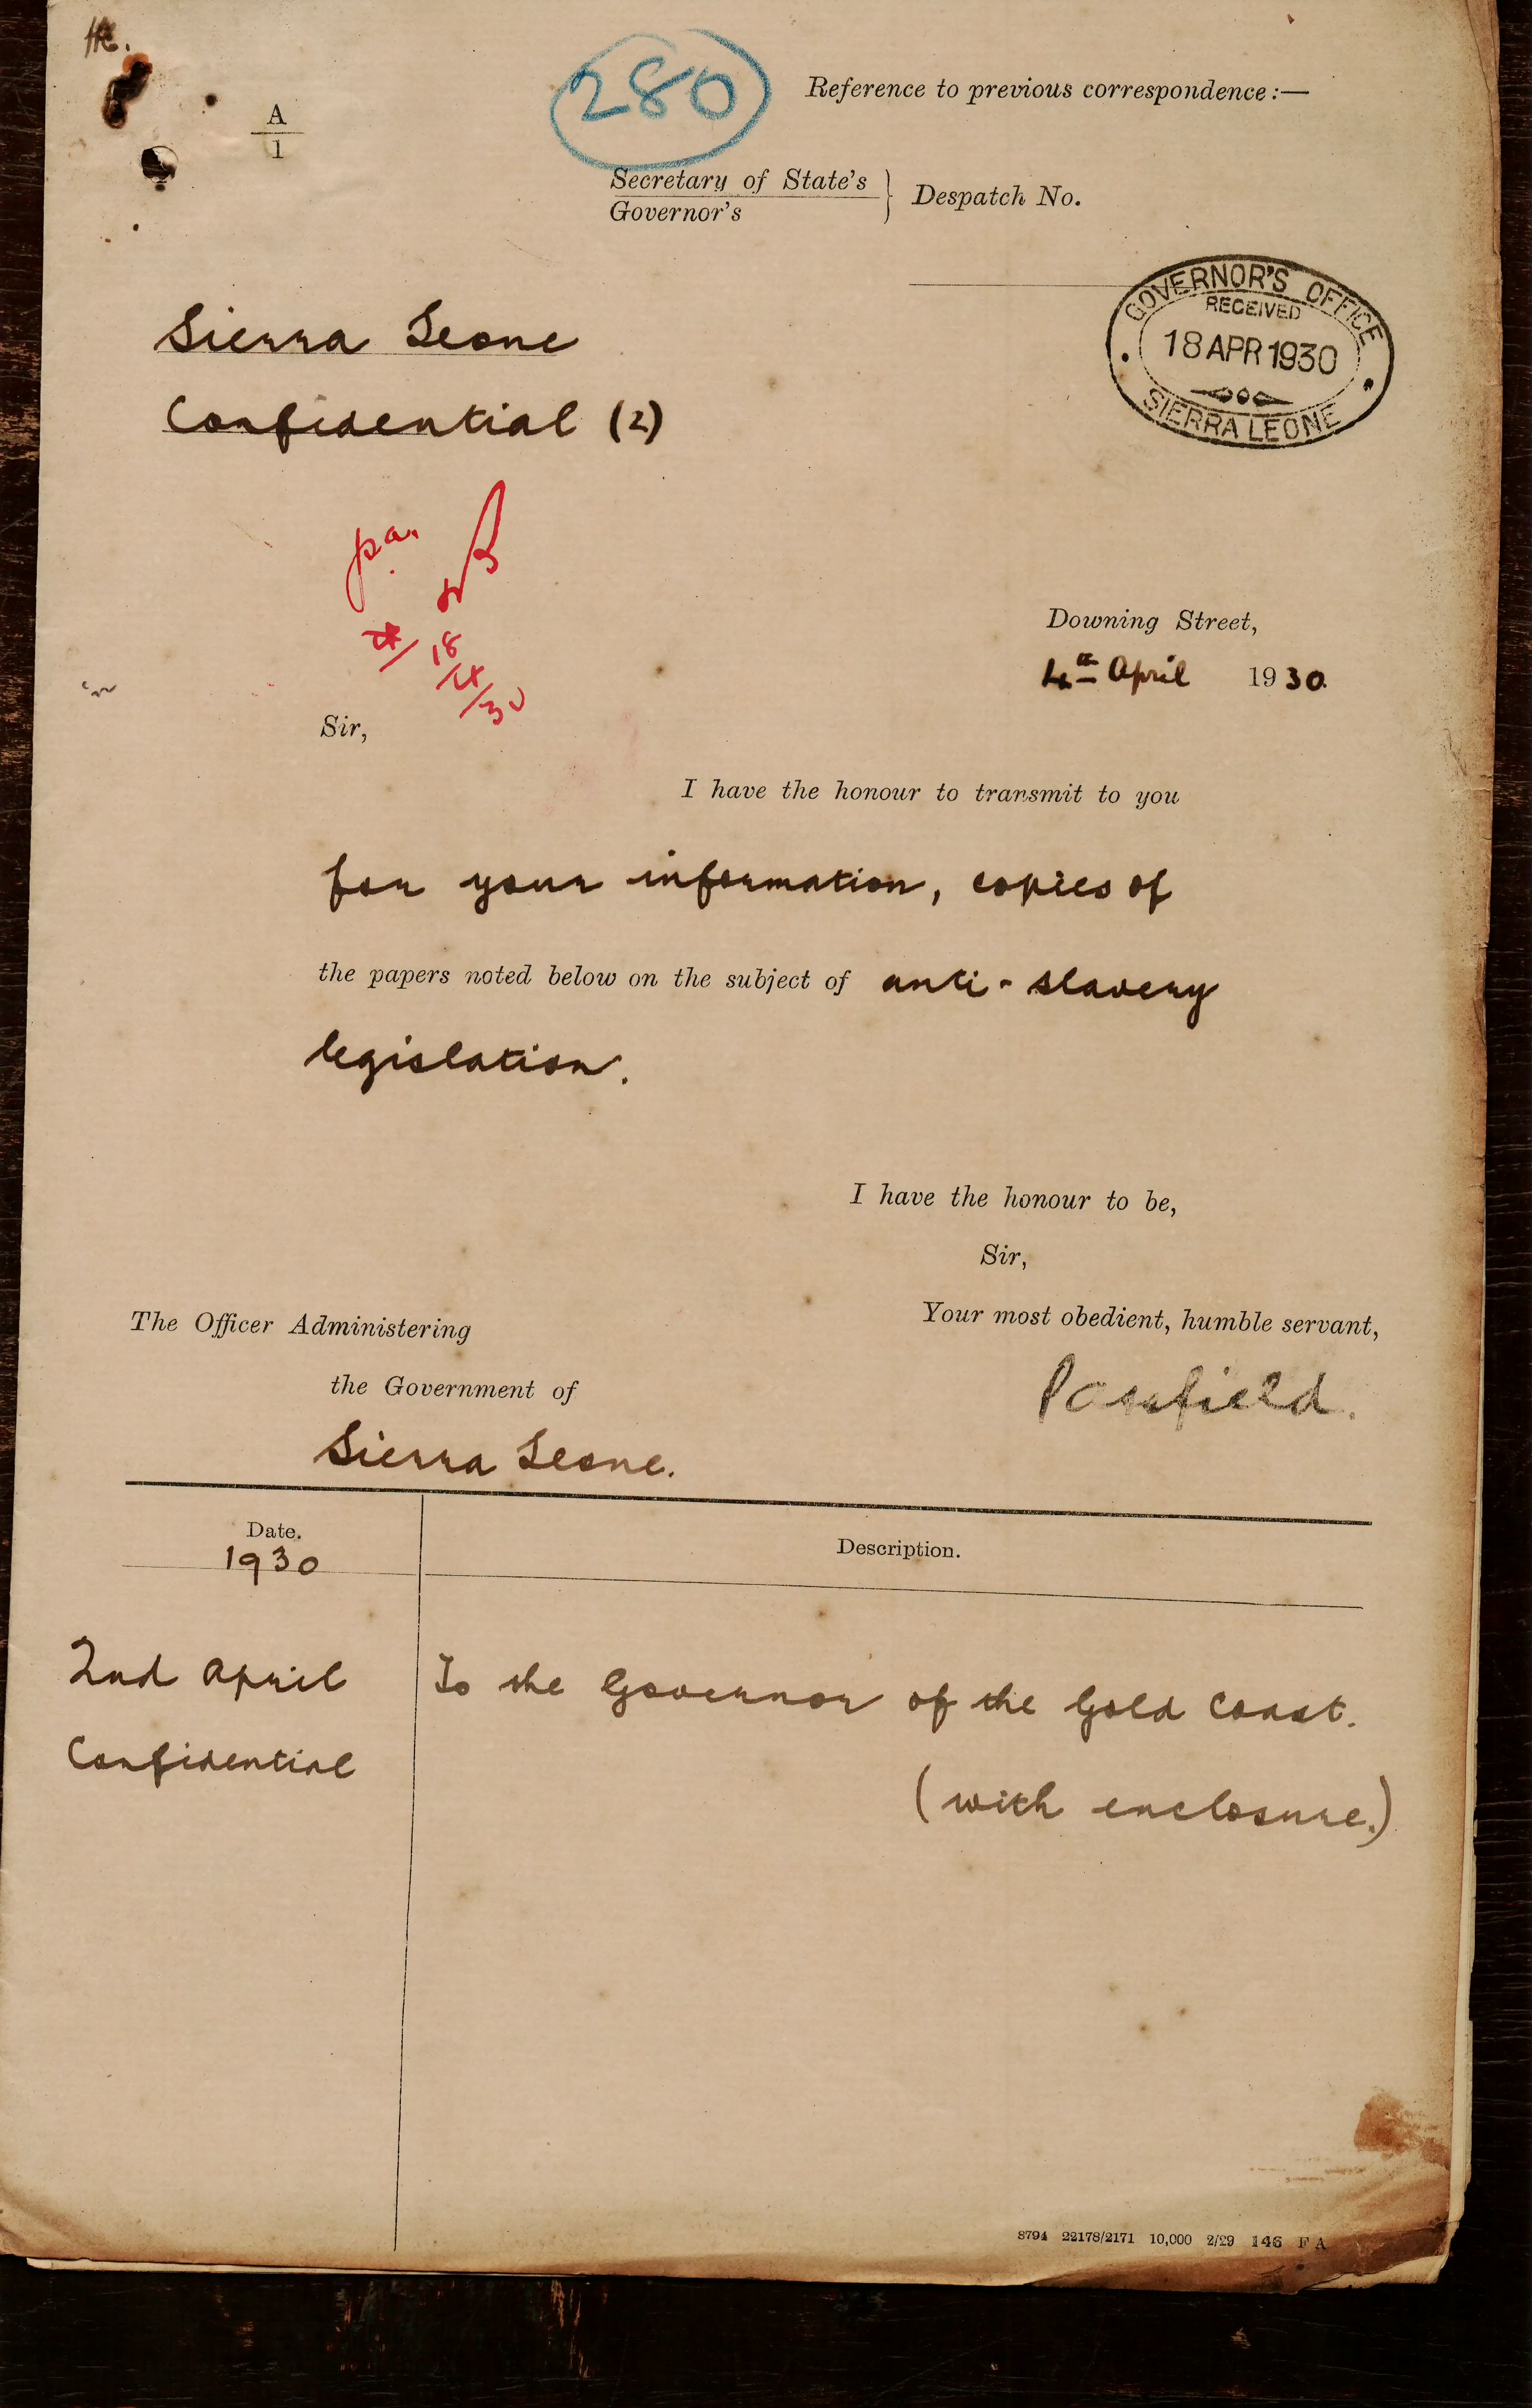 280
Reference to previous correspondence :—
A
1
Secretary of State's
Governor's
Despatch No.
GOVERNOR'S OFFICE
RECEIVED
18 APR 1930
SIERRA LEONE
Sierra Leone
Confidential (2)
p.a.
18
4
30
Downing Street,
4th April 1930.
Sir,
I have the honour to transmit to you
for your information, copies of
the papers noted below on the subject of anti-slavery
legislation.
I have the honour to be,
Sir,
Your most obedient, humble servant,
Passfield.
The Officer Administering
the Government of
Sierra Leone.
Date.
Description.
1930
2nd April
To the Governor of the Gold Coast.
Confidential
(with enclosure.)
8794 22178/2171 10,000 2/29 146 F A